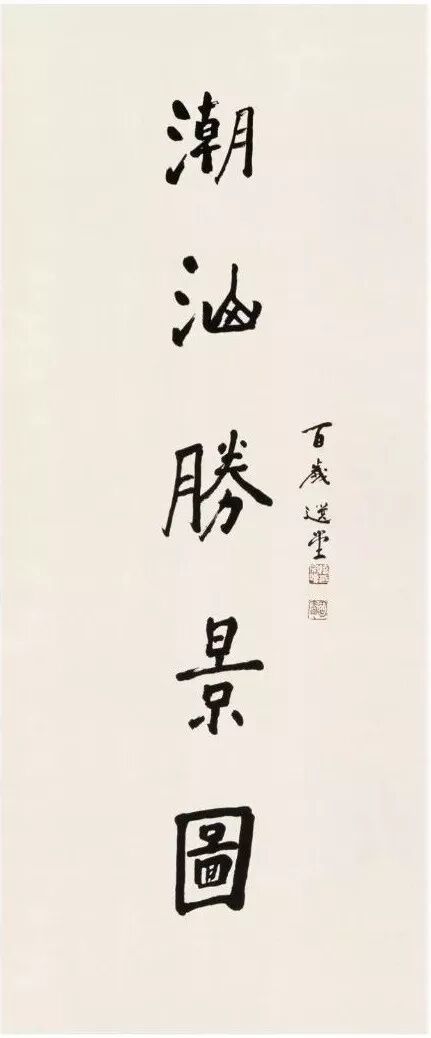 潮汕勝景圖
百歲選堂